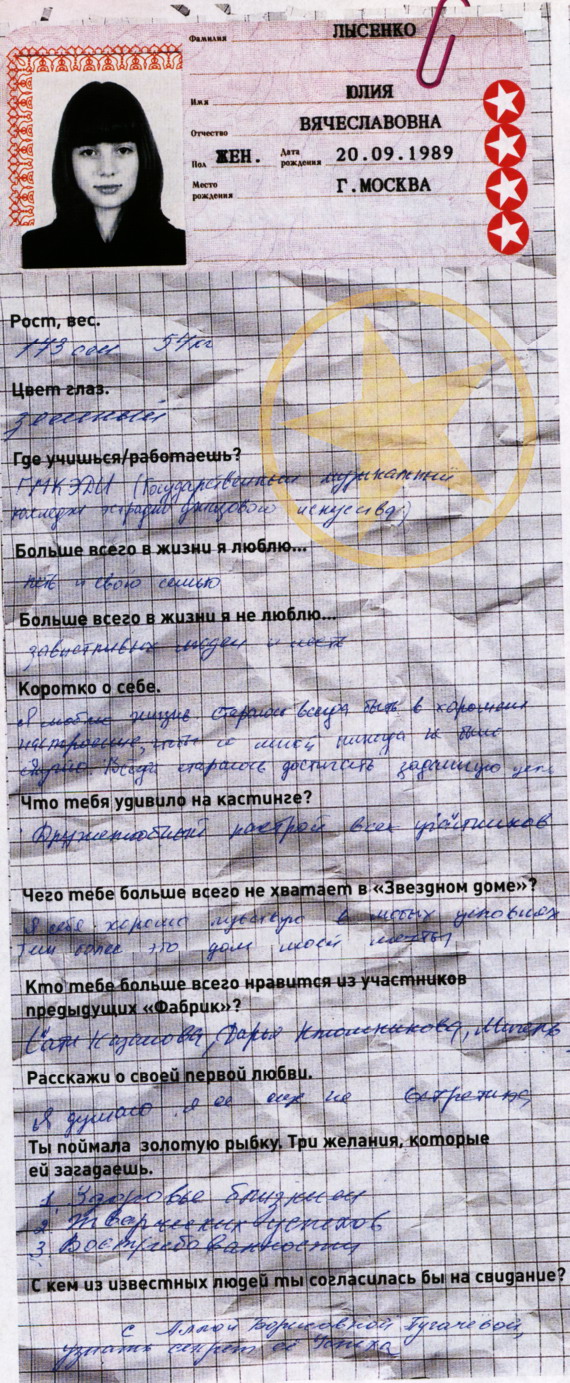 Фамилия ЛЫСЕНКО
Имя ЮЛИЯ
Отчество ВЯЧЕСЛАВОВНА
Пол ЖЕН. Дата рождения 20.09.1989
Место рождения Г.МОСКВА
Рост, вес.
173 см 54 кг
Цвет глаз.
зеленый
Где учишься/работаешь?
ГМКЭДИ (Государственный музыкальный
колледж эстрадно джазового искусства)
Больше всего в жизни я люблю...
петь и свою семью
Больше всего в жизни я не люблю...
завистливых людей и лесть
Коротко о себе.
Я люблю жизнь стараюсь всегда быть в хорошем
настроение, со мной никогда не было
скучно. Всегда стараюсь достигать заданную цель
Что тебя удивило на кастинге?
Дружелюбный настрой всех участников
Чего тебе больше всего не хватает в «Звездном доме»?
Я себя хорошо чувствую в любых условиях
Тем более это дом моей мечты
Кто тебе больше всего нравится из участников
предыдущих «Фабрик»?
Сати Казанова, Дарья Клюшникова,
Расскажи о своей первой любви.
Я думаю я её еще не встретила,
Ты поймала золотую рыбку. Три желания, которые
ей загадаешь.
1 Здоровье близким
2 Творческих успехов
3 Востребованности
С кем из известных людей ты согласилась бы на свидание?
с Аллой Борисовной Пугачёвой,
узнать секрет её успеха